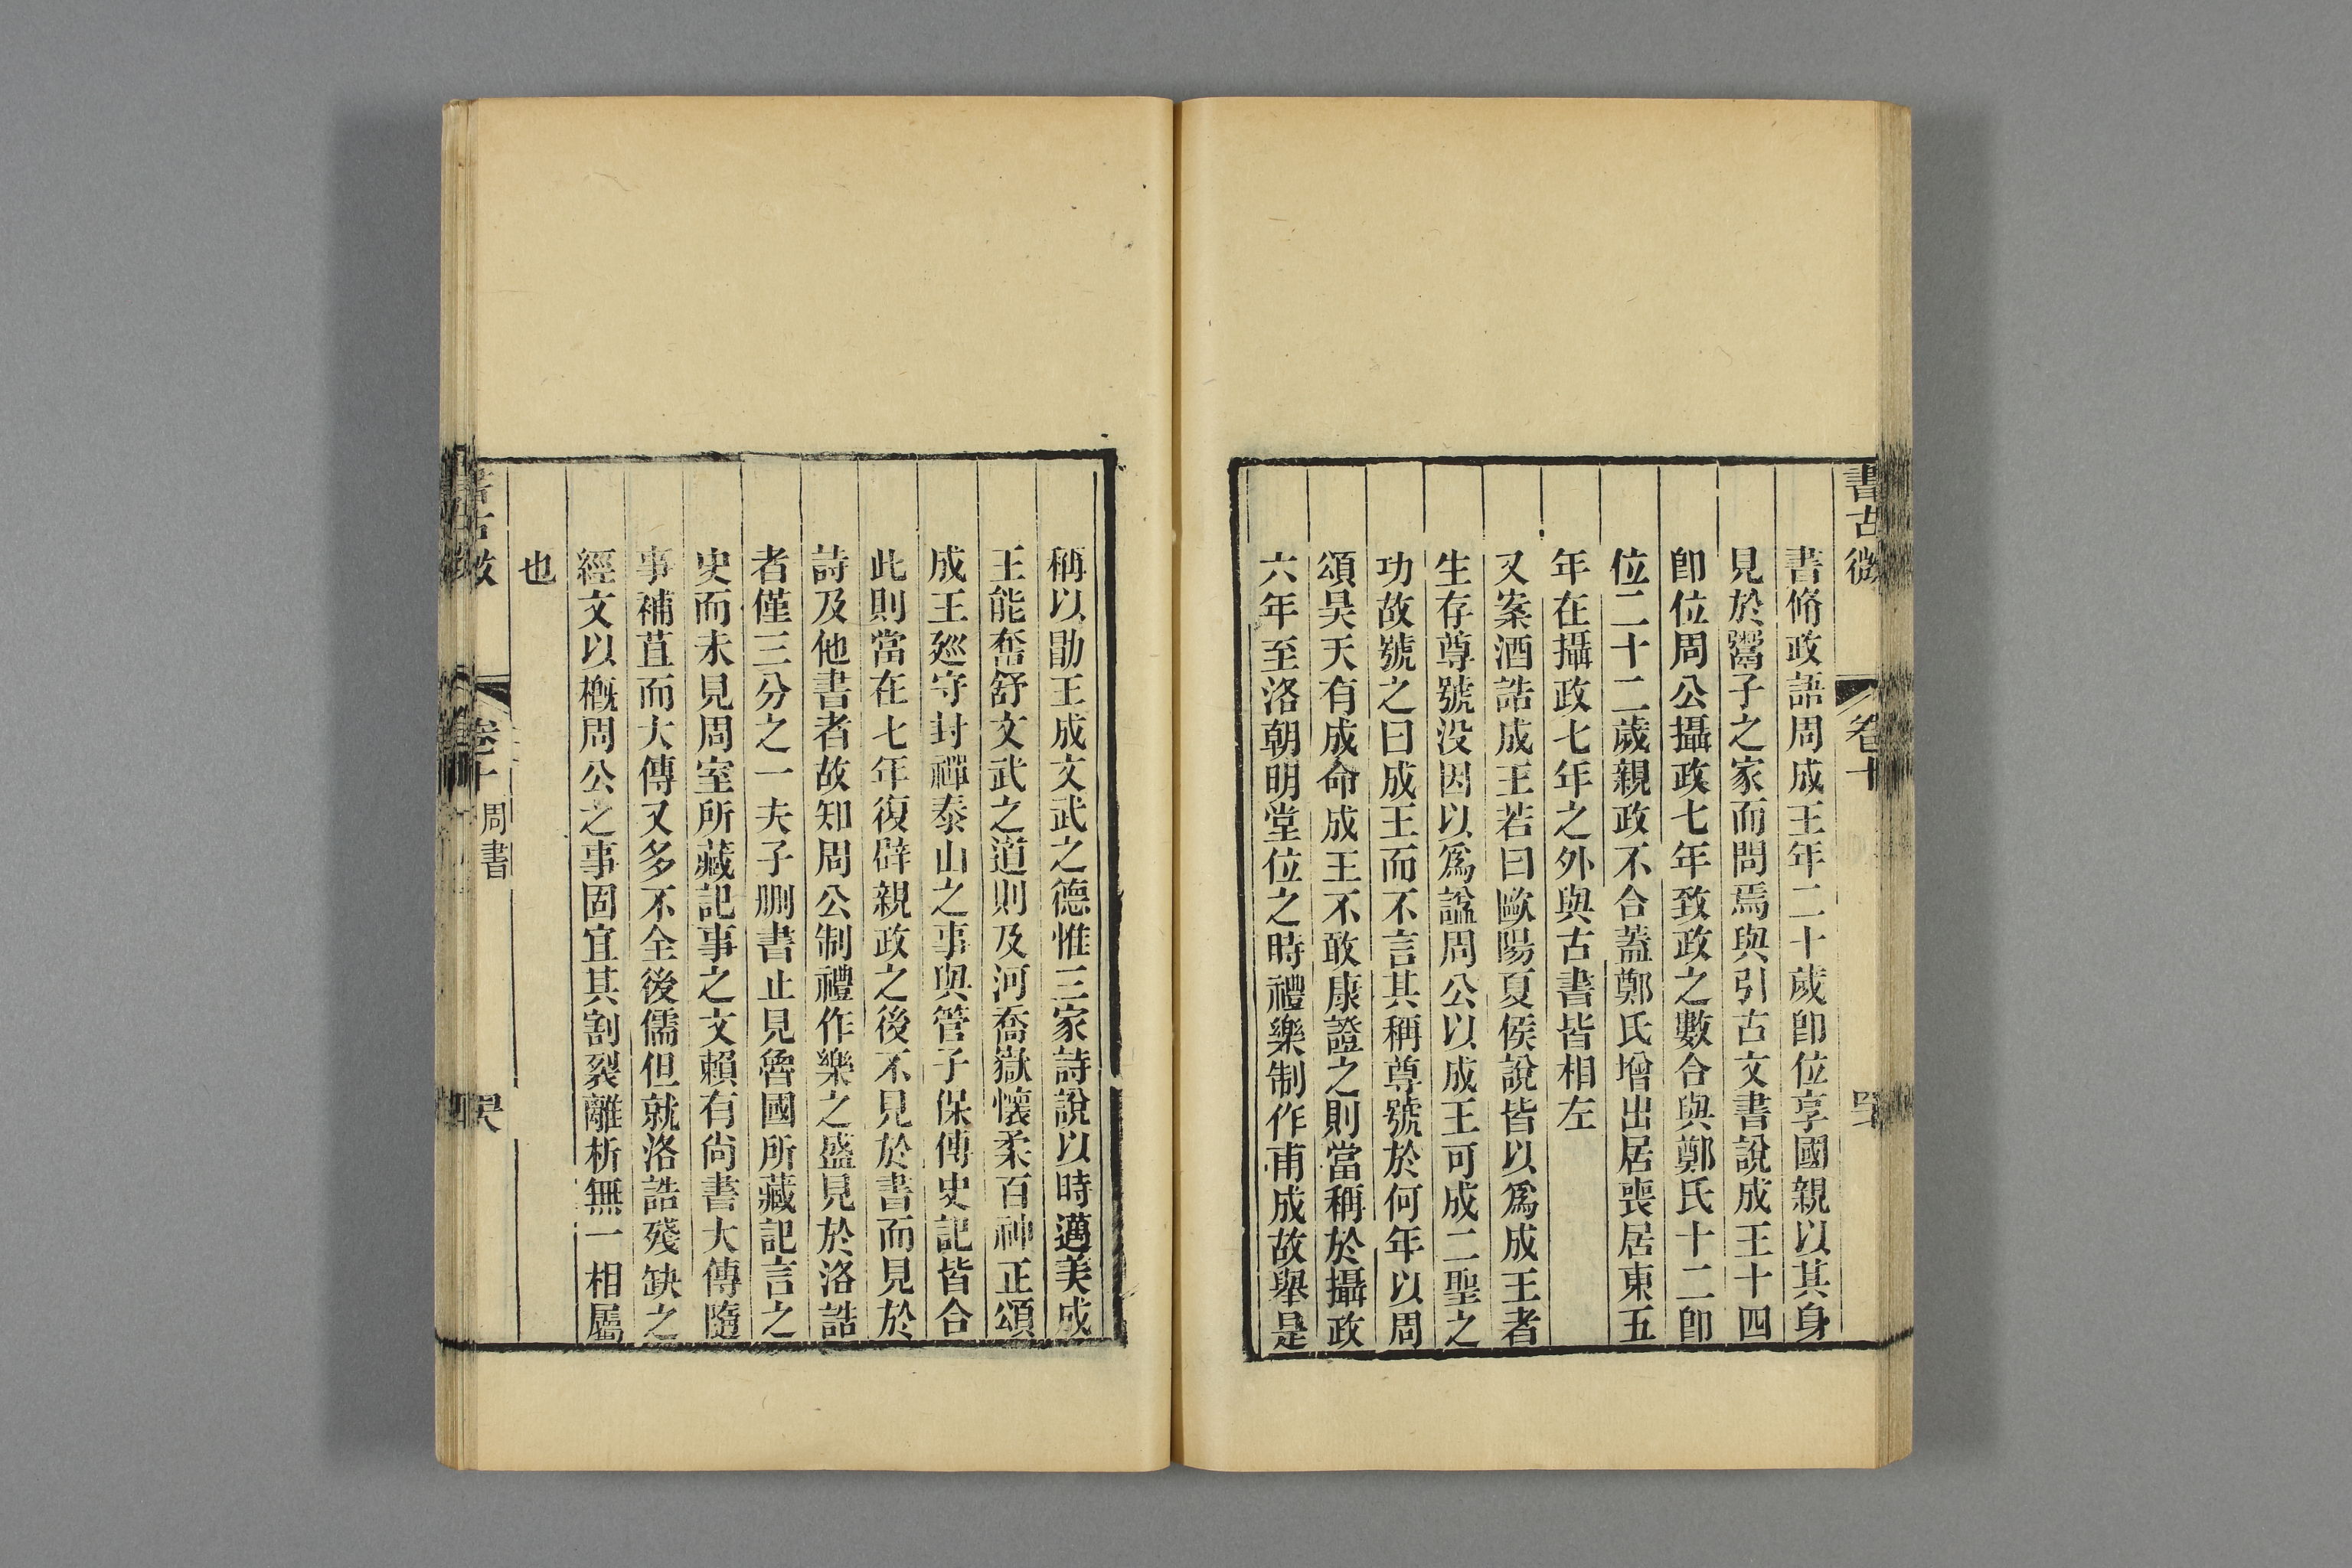 書古微
卷十
書脩政語周成王年二十歲卽位享國親以其身
見於鬻子之家而問焉與引古文書說成王十四
卽位周公攝政七年致政之數合與鄭氏十二卽
位二十二歲親政不合蓋鄭氏增出居喪居東五
年在攝政七年之外與古書皆相左
又案酒誥成王若曰歐陽夏侯說皆以爲成王者
生存尊號没因以爲諡周公以成王可成二聖之
功故號之曰成王而不言其稱尊號於何年以周
頌昊天有成命成王不敢康證之則當稱於攝政
六年至洛朝明堂位之時禮樂制作甫成故舉是
稱以勖王成文武之德惟三家詩說以時邁美成
王能奮舒文武之道則及河喬嶽懷柔百神正頌
成王廵守封禪泰山之事與管子保傅史記皆合
此則當在七年復辟親政之後不見於書而見於
詩及他書者故知周公制禮作樂之盛見於洛誥
者僅三分之一夫子刪書止見魯國所藏記言之
史而未見周室所藏記事之文賴有尙書大傳隨
事補苴而大傳又多不全後儒但就洛誥殘缺之
經文以槪周公之事固宜其割裂離析無一相屬
也
卷十
周書